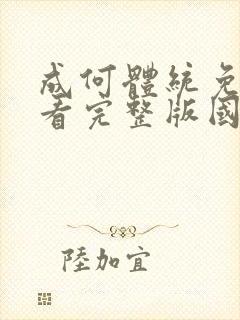 成何體統免
看完整版國
陸加宜